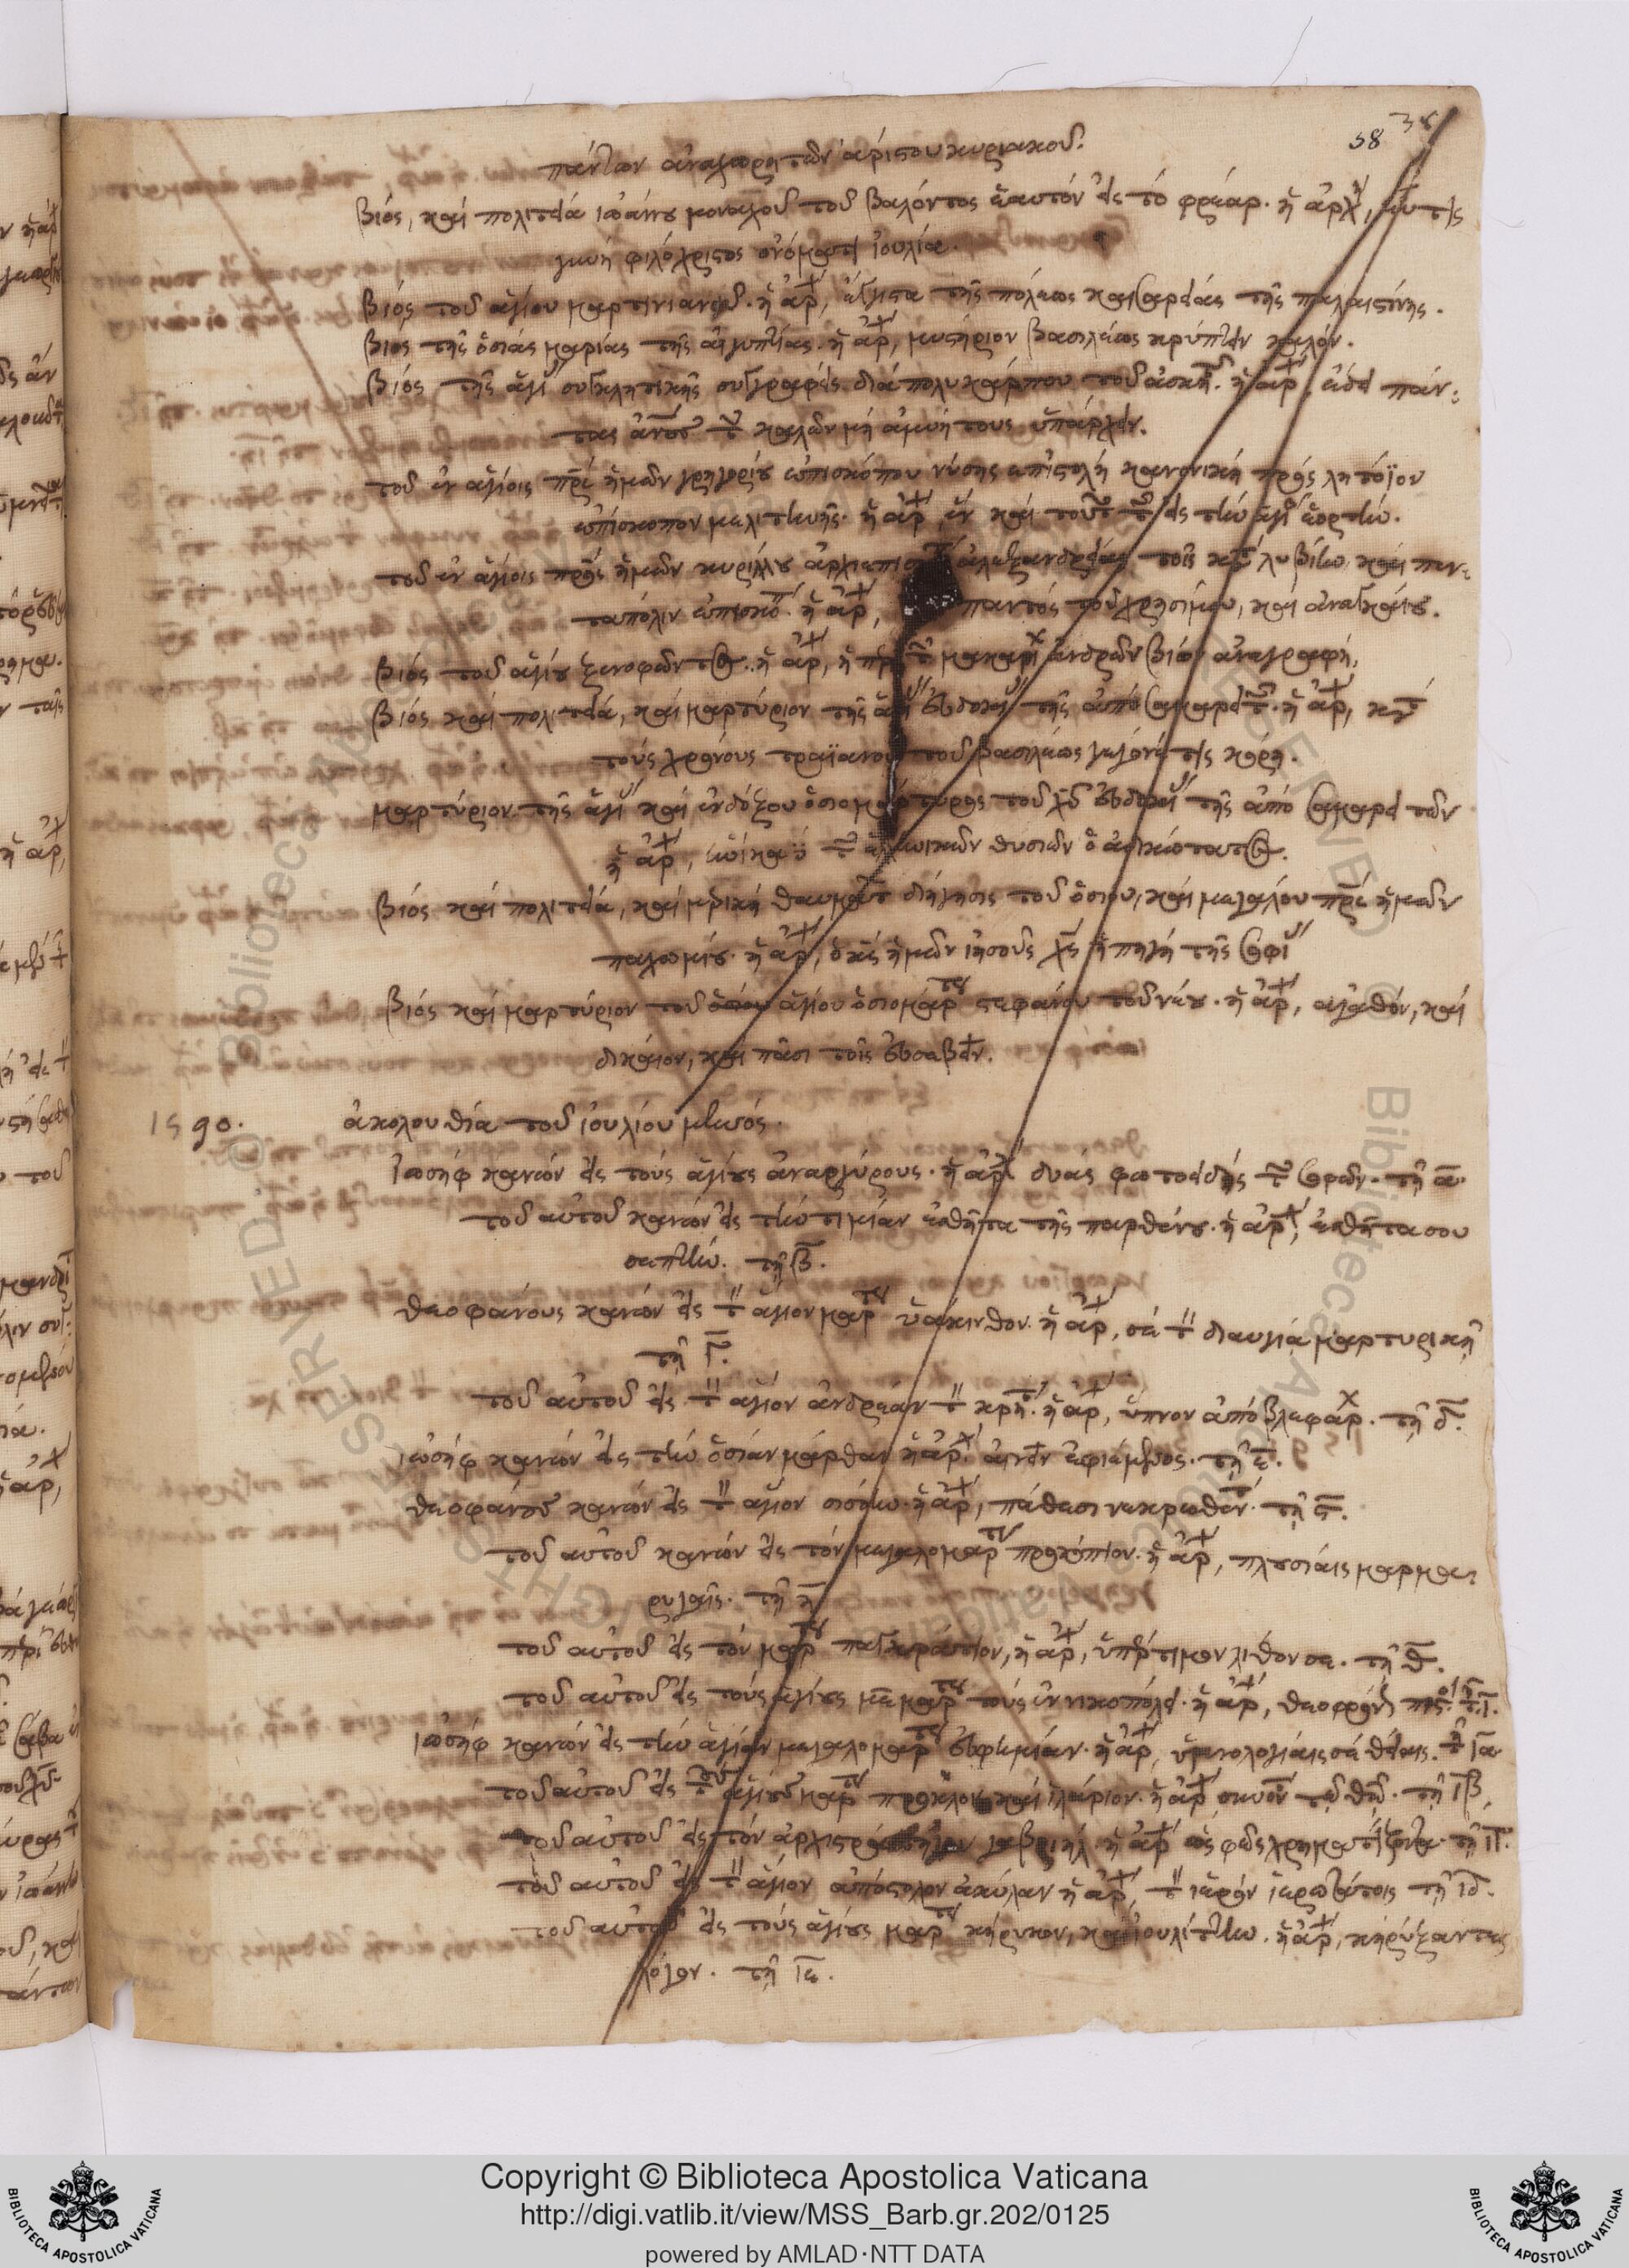 58
πάντων ἀναχωρητῶν ἀρίστου κυριακοῦ.
βίος, καί πολιτεία ἰωάννου μοναχοῦ τοῦ βαλόντος ἑαυτόν εἰς τό φρέαρ. ἡ ἀρχ,
γυνή φιλόχριστος ὀνόματι ἰουλία.
βίος τοῦ ἁγίου μαρτινιανοῦ. ἡ ἀρχ, τῆς πόλεως καισαρείας τῆς παλαιστίνης.
βίος τῆς ὁσίας μαρίας τῆς αἰγυπτίας. ἡ ἀρχ, μυστήριον βασιλέως κρύπτειν καλόν.
βίος τῆς ἁγί συγκλητικῆς συγγραφείς διά πολυκάρπου τοῦ ἀσκητ. ἡ ἀρχ, ἔδει πάν-
τας ἀνους τ καλῶν μή ἀμυήτους ὑπάρχειν.
τοῦ ἐν ἁγίοις πρς ἡμῶν γρηγορίου ἐπισκόπου νύσης ἐπιστολή κανονική πρός λητόϊον
ἐπίσκοπον μελιτηνῆς. ἡ ἀρχ, ἕν καί τοῦτ τ εἰς τήν ἁγί ἑορτήν.
τοῦ ἐν ἁγίοις πρς ἡμῶν κυρίλλου ἀρχιεπισκ ἀλεξανδρείας τοῖς κατ λυβίην, καί πεν-
ταπόλιν ἐπισκόπ. ἡ ἀρχ, παντός τοῦ χρησίμου, καί ἀναγκαίου.
βίος τοῦ ἁγίου ξενοφῶντος. ἡ ἀρχ, ἡ π τ μακαρί ἀνδρῶν βίων ἀναγραφή,
βίος καί πολιτεία, καί μαρτύριον τῆς ἁγί εὐδοκί τῆς ἀπό σαμαρειτ. ἡ ἀρχ, κατ
τούς χρόνους τραϊανοῦ τοῦ βασιλέως γέγονέ τις κόρη.
μαρτύριον τῆς ἁγί καί ἐνδόξου ὁσιομάρτυρος τοῦ χυ εὐδοκί τῆς ἀπό σαμαρειτῶν
ἡ ἀρχ, τ θυσιῶν ὁ ἀδικώτατος.
βίος καί πολιτεία, καί μερική θαυμάτ διήγησις τοῦ ὁσίου, καί μεγάλου πρς ἡμῶν
παχωμίου. ἡ ἀρχ, ὁ κς ἡμῶν ἰησοῦς χς ἡ πηγή τῆς σοφί
βίος καί μαρτύριον τοῦ ὁσίου ἁγίου ὁσιομάρτυ στεφάνου τοῦ νέου. ἡ ἀρχ, ἀγαθόν, καί
δίκαιον, καί πᾶσι τοῖς εὐσεβεῖν.
1590. ἀκολουθία τοῦ ἰουλίου μηνός.
ἰωσήφ κανών εἰς τούς ἁγίους ἀναργύρους. ἡ ἀρχ δυάς φωτοειδής τ ἱερῶν. τῇ α.
τοῦ αὐτοῦ κανών εἰς τήν τιμίαν ἐσθῆτα τῆς παρθένου. ἡ ἀρχ, ἐσθῆτα σου
σεπτήν. τῇ β.
θεοφάνους κανών εἰς τ ἅγιον μάρτυ ὑάκινθον. ἡ ἀρχ, σέ τ διαυγεία μαρτυρική
τῇ γ.
τοῦ αὐτοῦ εἰς τ ἅγιον ἀνδρέαν τ κρήτ. ἡ ἀρχ, ὕπνον ἀπό βλεφάρ. τῇ δ.
ἰωσήφ κανών εἰς τήν ὁσίαν μάρθαν ἡ ἀρχ. αἰνεῖν ἐφιέμενος. τῇ ε.
θεοφάνους κανών εἰς τ ἅγιον σισόην. ἡ ἀρχ, πάθεσι νεκρωθεῖν. τῇ ς.
τοῦ αὐτοῦ κανών εἰς τόν μεγαλομάρτυ προκόπιον. ἡ ἀρχ, πλουσίαις μαρμα-
ρυγαῖς. τῇ η
τοῦ αὐτοῦ εἰς τόν μάρτυ παγκράτιον, ἡ ἀρχ, ὑπέρτιμον λίθον σε. τῇ θ.
τοῦ αὐτοῦ εἰς τούς ἁγίους με μάρτυ τούς ἐν νικοπόλει. ἡ ἀρχ, τ ι.
ἰωσήφ κανών εἰς τήν ἁγίαν μεγαλομάρτυ εὐφημίαν. ἡ ἀρχ, ὑμνολογίαις σέ θείαις. τ ια
τοῦ αὐτοῦ εἰς τ ἁγίους μάρτυ πρόκλον καί ἱλάριον. ἡ ἀρχ τῷ θῷ. τῇ ιβ
τοῦ αὐτοῦ εἰς τόν ἀρχιστράτηγον γαβριήλ. ἡ ἀρχ ὡς φῶς χρηματίζοντα. τῇ ιγ.
τοῦ αὐτοῦ εἰς τ ἅγιον ἀπόστολον ἀκύλαν ἡ ἀρχ, τ ἱερόν ἱερωτάτοις τῇ ιδ.
τοῦ αὐτοῦ εἰς τούς ἁγίους μάρτυ κήρυκον, καί ἰουλίττην. ἡ ἀρχ, κηρύξαντες
λόγον. τῇ ιε.
Copyright © Biblioteca Apostolica Vaticana
http://digi.vatlib.it/view/MSS_Barb.gr.202/0125
powered by AMLAD·NTT DATA